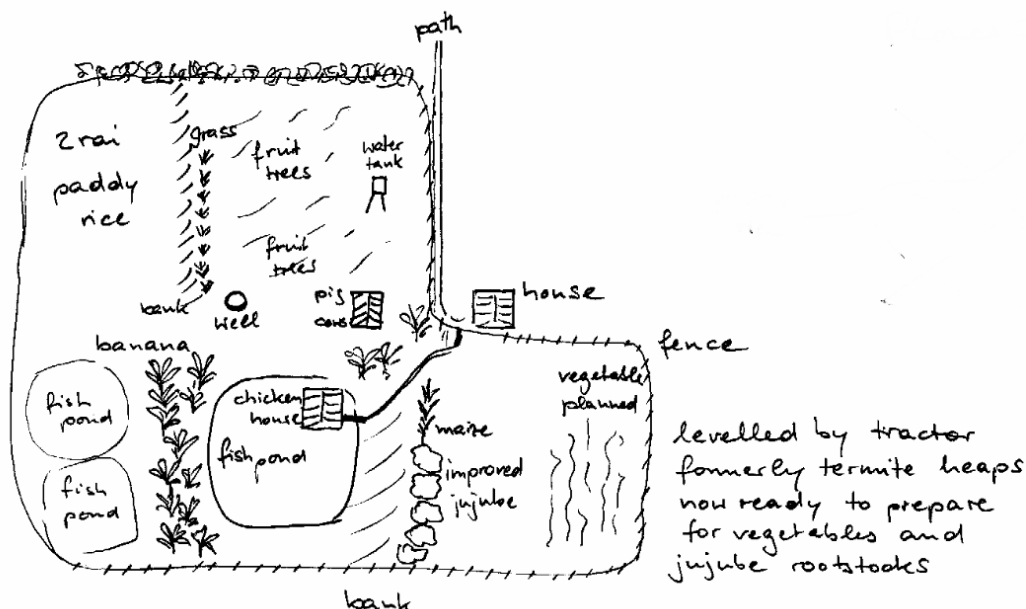 path
2 rai
paddy
rice
grass
fruit
trees
water
tank
fruit
trees
bank
well
pig
cows
house
fence
banana
fish
pond
fish
pond
chicken
house
fishpond
maize
improved
jujube
vegetable
planned
levelled by tractor
formerly termite heaps
now ready to prepare
for vegetables and
jujube rootstocks
bank